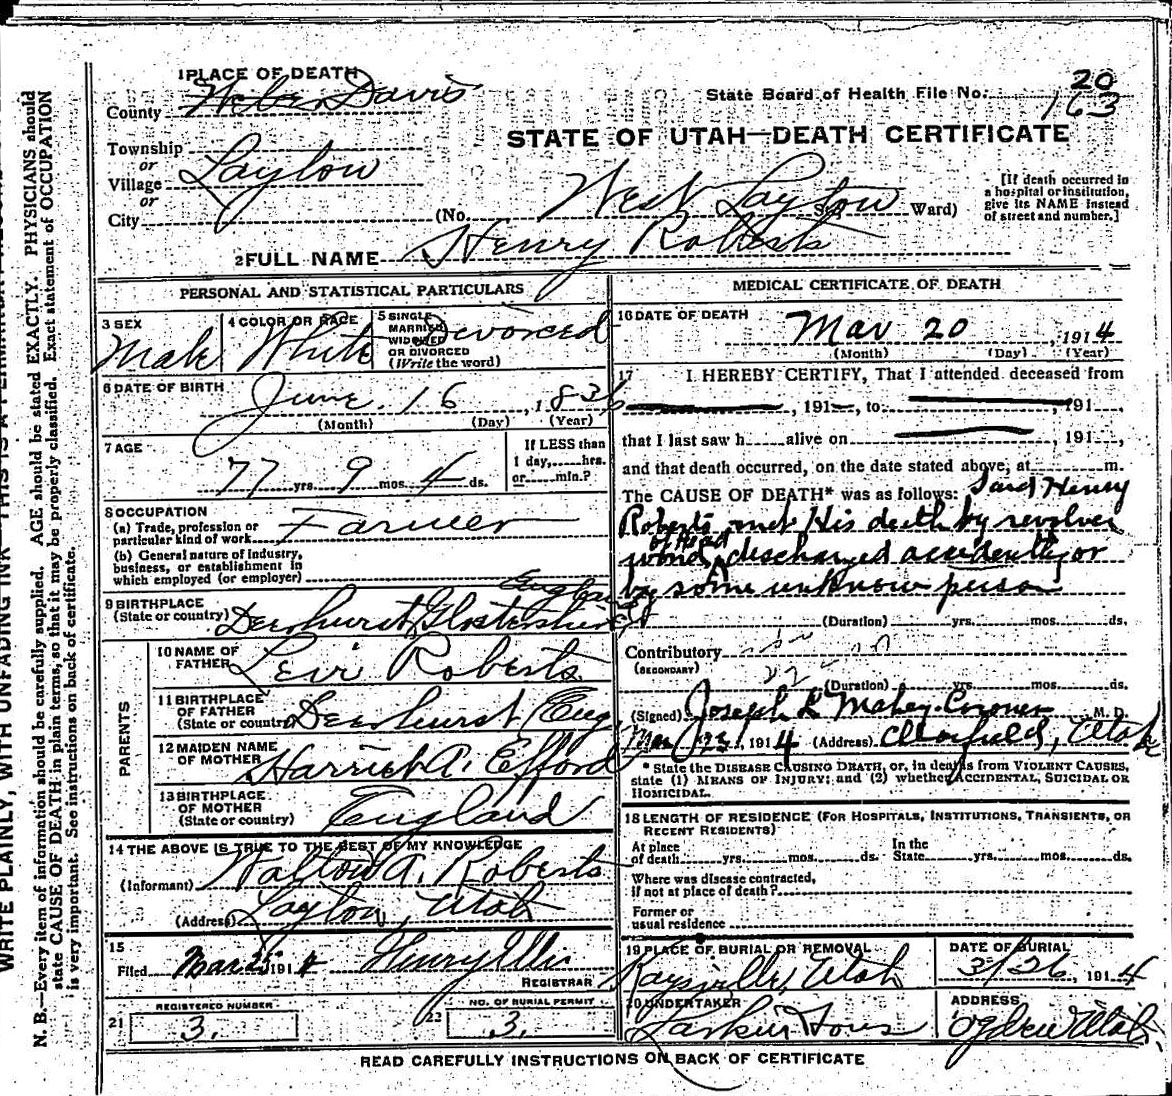 1 PLACE OF DEATH
County Weber Davis
State Board of Health File No. 20
163
STATE OF UTAH—DEATH CERTIFICATE
Township
or
Village Layton
or
City
(No. West Layton St. Ward)
[If death occurred in
a hospital or institution,
give its NAME instead
of street and number.]
2 FULL NAME Henry Roberts
PERSONAL AND STATISTICAL PARTICULARS
3 SEX
Male
4 COLOR OR RACE
White
5 SINGLE
MARRIED
WIDOWED
OR DIVORCED
(Write the word)
Divorced
6 DATE OF BIRTH
June 16, 1836
(Month) (Day) (Year)
7 AGE
77 yrs. 9 mos. 4 ds.
If LESS than
1 day, hrs.
or min.?
8 OCCUPATION
(a) Trade, profession or
particular kind of work Farmer
(b) General nature of industry,
business, or establishment in
which employed (or employer)
9 BIRTHPLACE
(State or country) Deerhurst, Glostershire
England
PARENTS
10 NAME OF
FATHER Levi Roberts
11 BIRTHPLACE
OF FATHER
(State or country) Deerhurst Eng
12 MAIDEN NAME
OF MOTHER Harriet A. Efford
13 BIRTHPLACE
OF MOTHER
(State or country) England
14 THE ABOVE IS TRUE TO THE BEST OF MY KNOWLEDGE
(Informant) A. Roberts
(Address) Layton, Utah
15
Filed Mar 25 1914 Henry Ellis
REGISTRAR
REGISTERED NUMBER
21 3.
NO. OF BURIAL PERMIT
22 3.
MEDICAL CERTIFICATE OF DEATH
16 DATE OF DEATH
Mar 20, 1914
(Month) (Day) (Year)
17 I HEREBY CERTIFY, That I attended deceased from
, 191 , to , 191 ,
that I last saw h alive on , 191 ,
and that death occurred, on the date stated above, at m.
The CAUSE OF DEATH* was as follows: Said Henry
Roberts met His death by revolver
wond of Head discharged accidently or
by some unknow person
(Duration) yrs. mos. ds.
Contributory
(SECONDARY)
(Duration) yrs. mos. ds.
(Signed) Joseph L Mahey Coroner M. D.
Mar 23, 1914 (Address) Clearfield, Utah
* State the DISEASE CAUSING DEATH, or, in deaths from VIOLENT CAUSES,
state (1) MEANS OF INJURY; and (2) whether ACCIDENTAL, SUICIDAL OR
HOMICIDAL.
18 LENGTH OF RESIDENCE (FOR HOSPITALS, INSTITUTIONS, TRANSIENTS, OR
RECENT RESIDENTS)
At place
of death yrs. mos. ds.
In the
State yrs. mos. ds.
Where was disease contracted,
if not at place of death?
Former or
usual residence
19 PLACE OF BURIAL OR REMOVAL
Kaysville, Utah
DATE OF BURIAL
3/26, 1914
20 UNDERTAKER
Larkin Sons
ADDRESS
Ogden Utah
READ CAREFULLY INSTRUCTIONS ON BACK OF CERTIFICATE
WRITE PLAINLY, WITH UNFADING INK—THIS IS A PERMANENT
N. B.—Every item of information should be carefully supplied. AGE should be stated EXACTLY. PHYSICIANS should
state CAUSE OF DEATH in plain terms, so that it may be properly classified. Exact statement of OCCUPATION
is very important. See instructions on back of certificate.